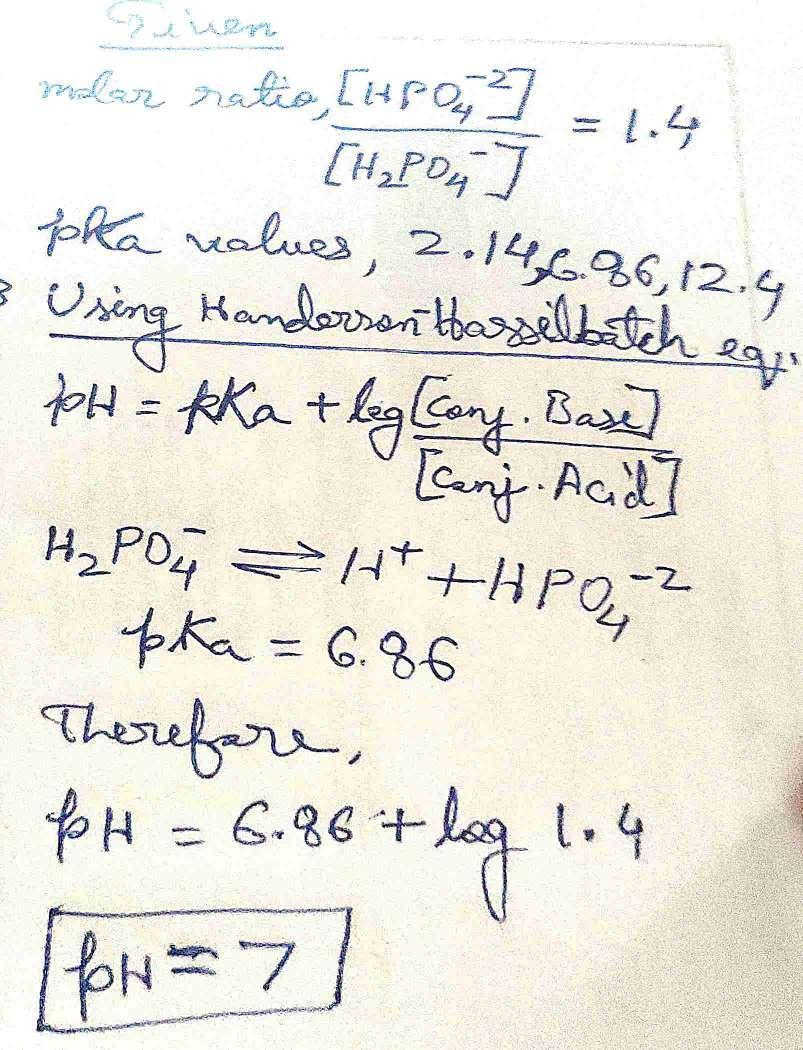 Given
molar ratio, [HPO₄⁻²] / [H₂PO₄⁻] = 1.4
pKa values, 2.14, 6.86, 12.4
Using Handerson Hasselbatch eq.
pH = pKa + log [Conj. Base] / [Conj. Acid]
H₂PO₄⁻ ⇌ H⁺ + HPO₄⁻²
pKa = 6.86
Therefore,
pH = 6.86 + log 1.4
pH = 7